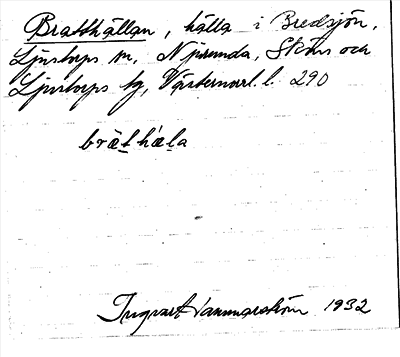 Bratthällan, hälla i Bredsjön,
Ljustorps sn, Njurunda, Sköns och
Ljustorps tg, Västernorrl. l. 290
brät̲hæl̲a
Ingvart 1932